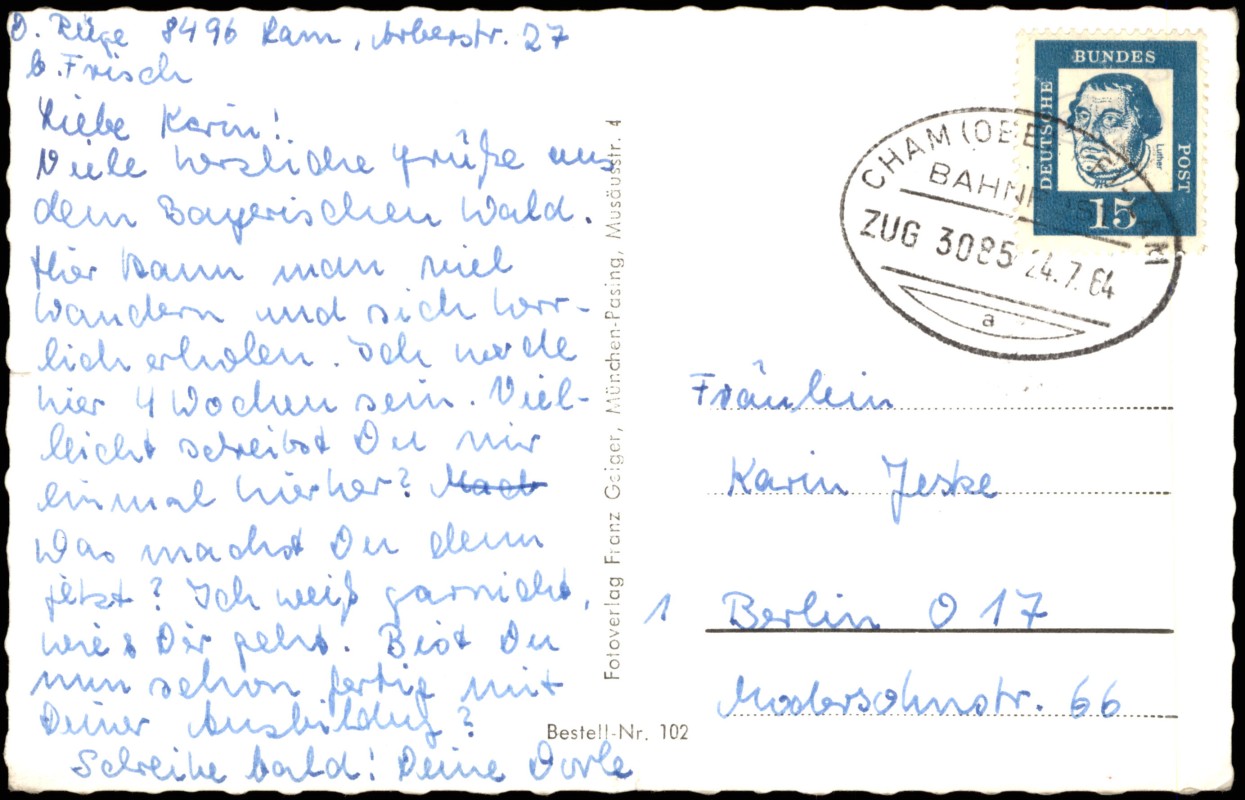 D. Rüge 8496 Lam, Arberstr. 27
b. Frisch
Liebe Karin!
Viele herzliche Grüße aus
dem Bayerischen Wald.
Hier kann man viel
wandern und sich herr-
lich erholen. Ich werde
hier 4 Wochen sein. Viel-
leicht schreibst Du mir
einmal hierher? Mach
Was machst Du denn
jetzt? Ich weiß garnicht,
wie's Dir geht. Bist Du
nun schon fertig mit
Deiner Ausbildug?
Schreibe bald! Deine Dorle
Fotoverlag Franz Geiger, München-Pasing, Musäusstr. 4
Bestell-Nr. 102
DEUTSCHE BUNDES POST
Luther
15
CHAM (OB
BAHN
ZUG 3085 24.7.64
a
Fräulein
Karin Jeske
1 Berlin O 17
Modersohnstr. 66